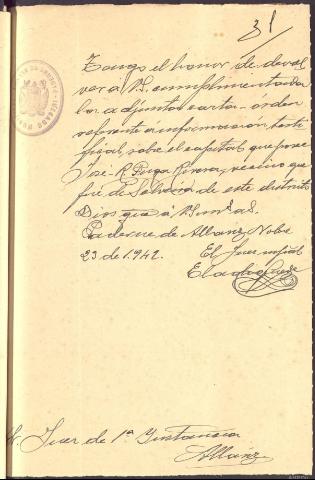 31
Tengo el honor de devol
ver á VS. cumplimentada
la adjunta carta-órden
referente á información testi
fical, sobre el capital que posee
José R Puga Rivera, vecino que
fué de Solveira de este distrito
Dios gue á VS. ms. as.
Paderne de Allariz Nobre
23 de 1.942.
El Juez mpal
Eladio
Sr. Juez de 1ª Instancia
Allariz